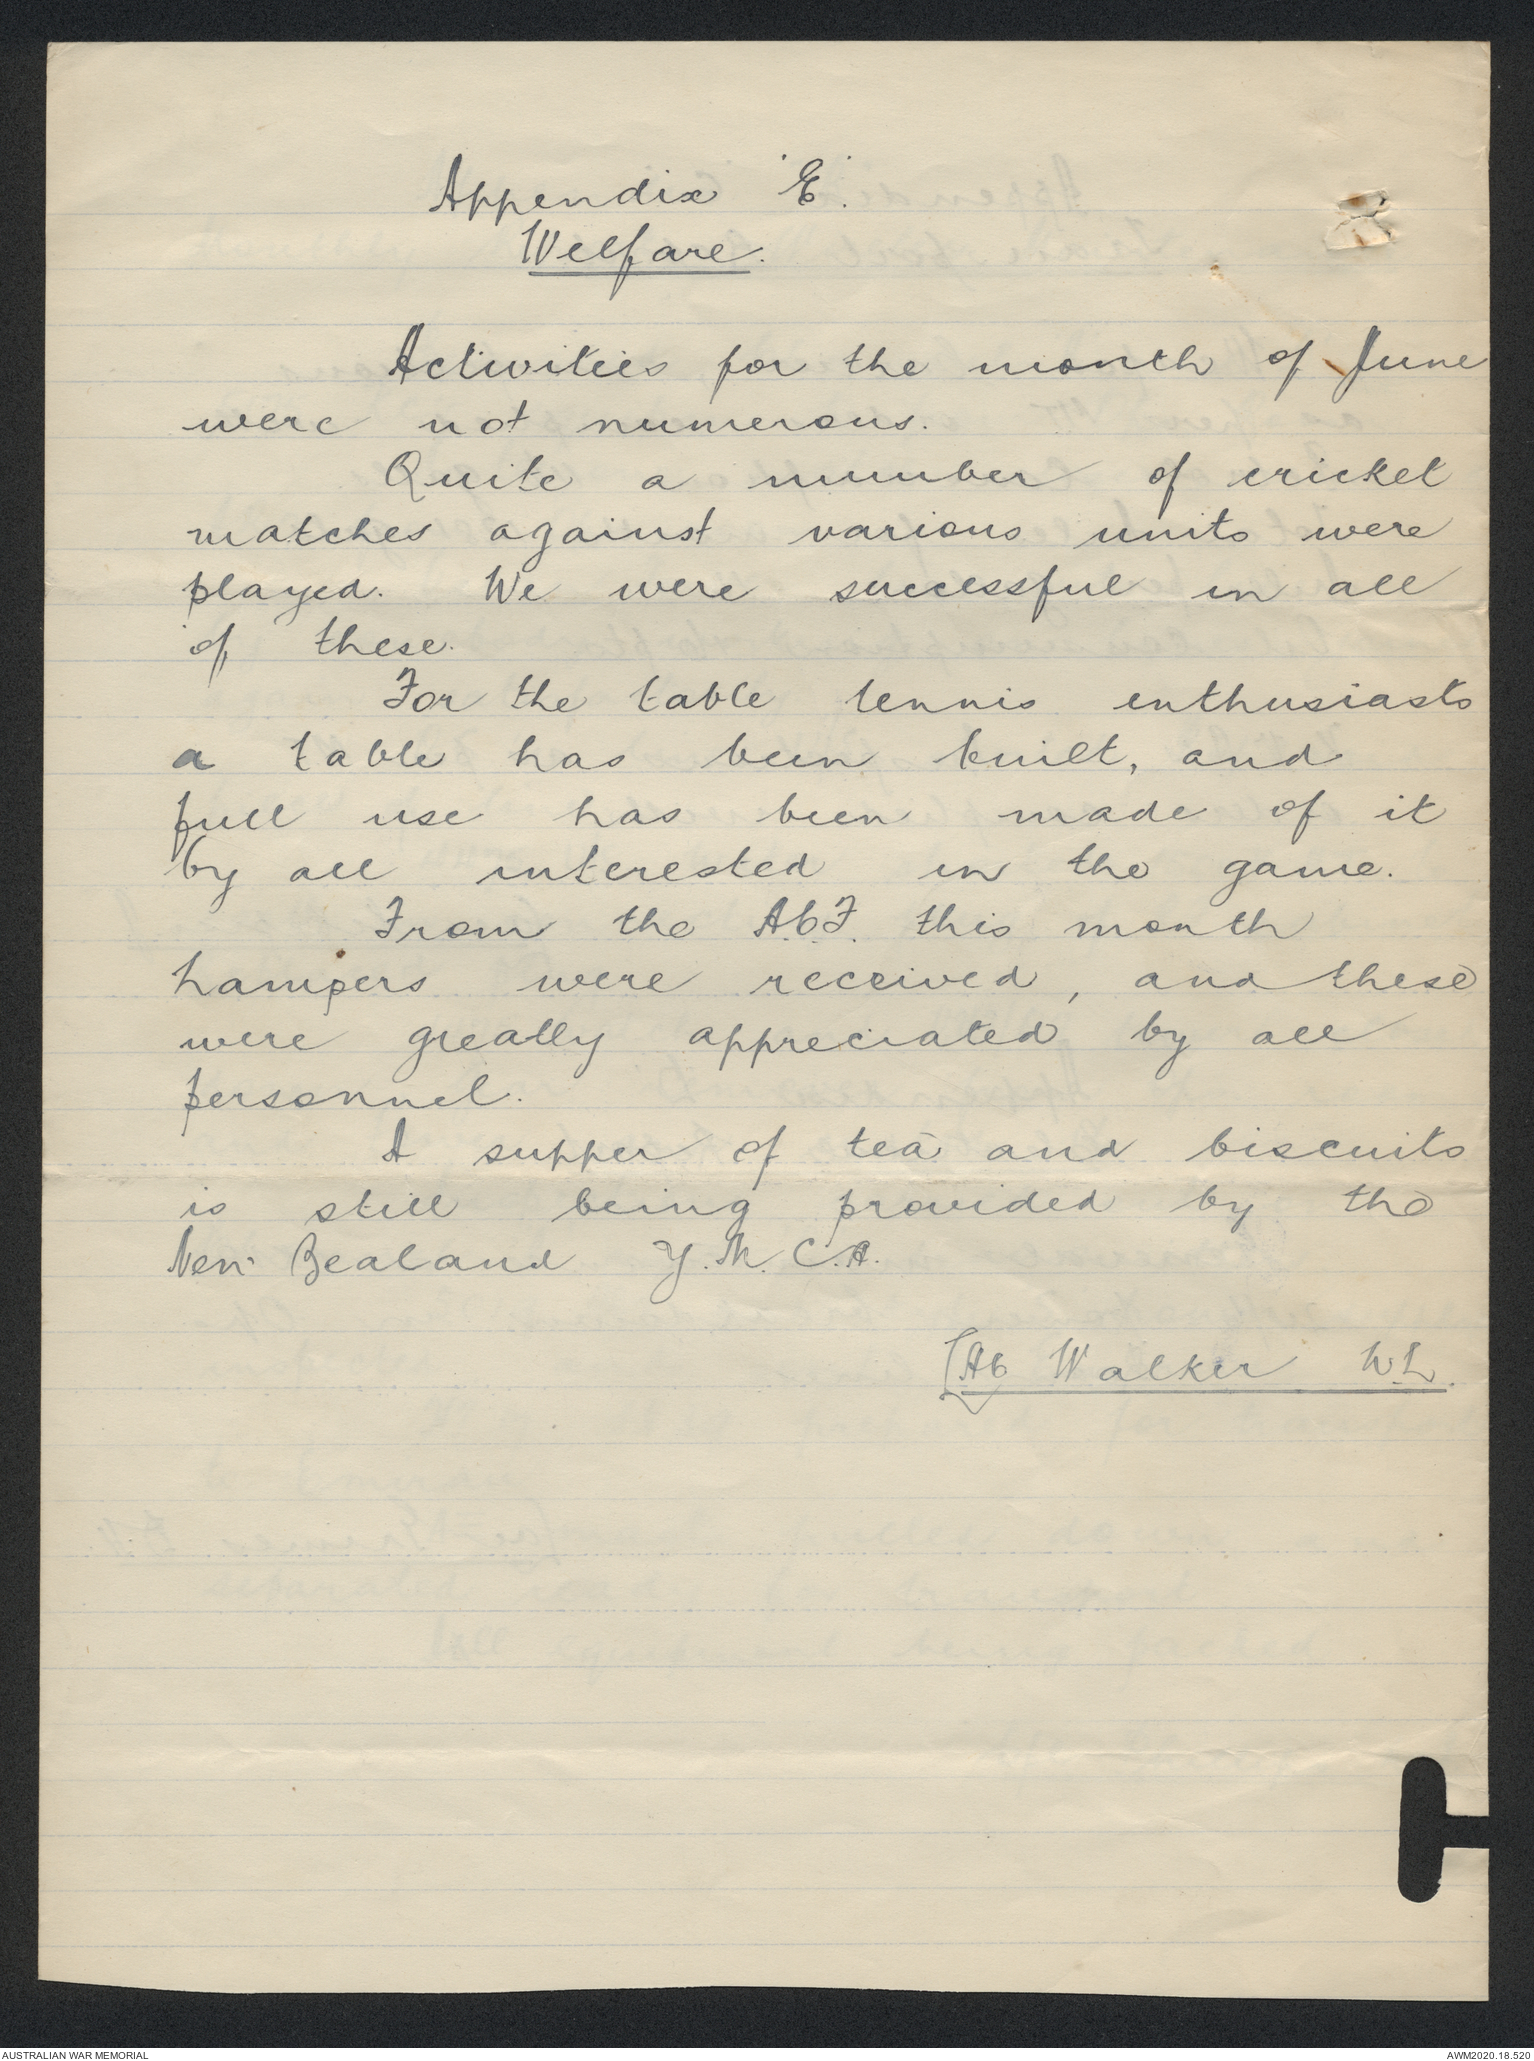 Appendix 'E'.
Welfare.
Activities for the month of June
were not numerous.
Quite a number of cricket
matches against various units were
played. We were successful in all
of these.
For the table tennis enthusiasts
a table has been built, and
full use has been made of it
by all interested in the game.
From the A.C.F. this month
hampers were received, and these
were greatly appreciated by all
personnel.
A supper of tea and biscuits
is still being provided by the
New Zealand Y.M.C.A.
Walker
AUSTRALIAN WAR MEMORIAL
AWM2020.18.520